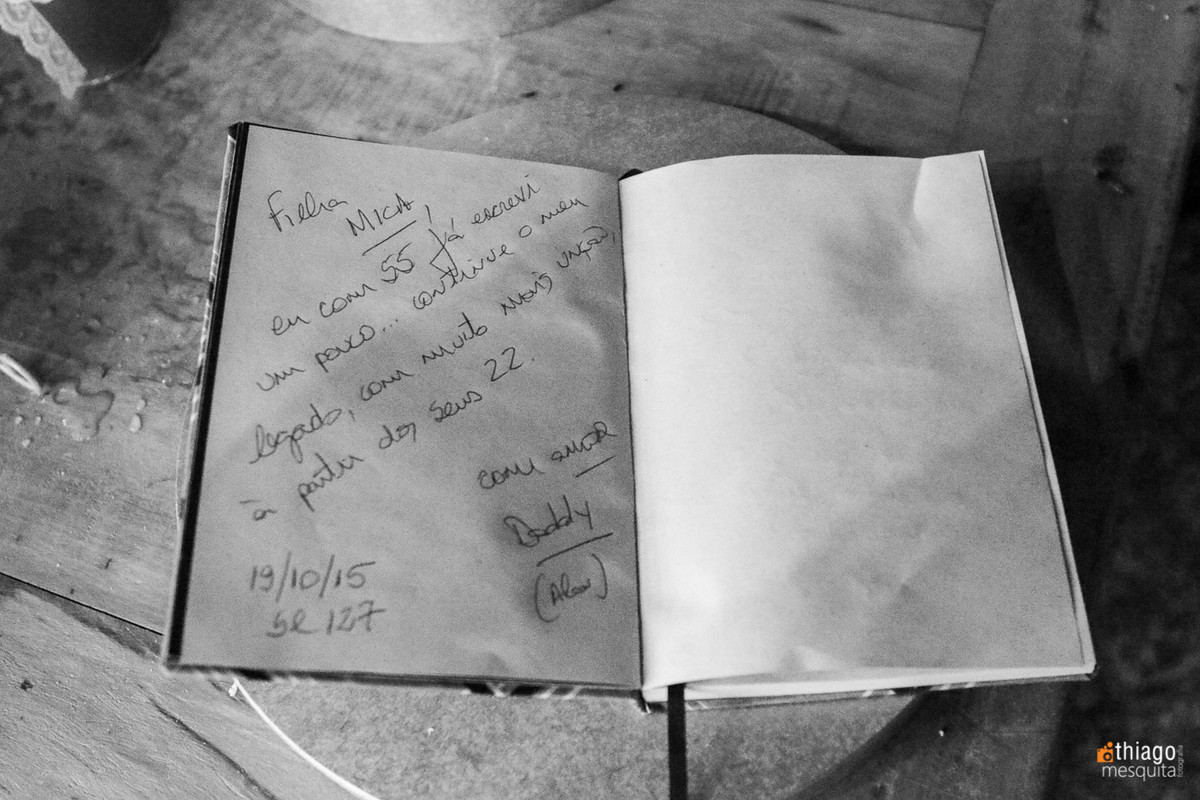 Filha
MICA,
eu com 55 já escrevi
um pouco... continue o meu
legado, com muito mais unção,
à partir dos seus 22.
com amor
Daddy
(Alex)
19/10/15
Sl 127
thiago
mesquita
fotografia